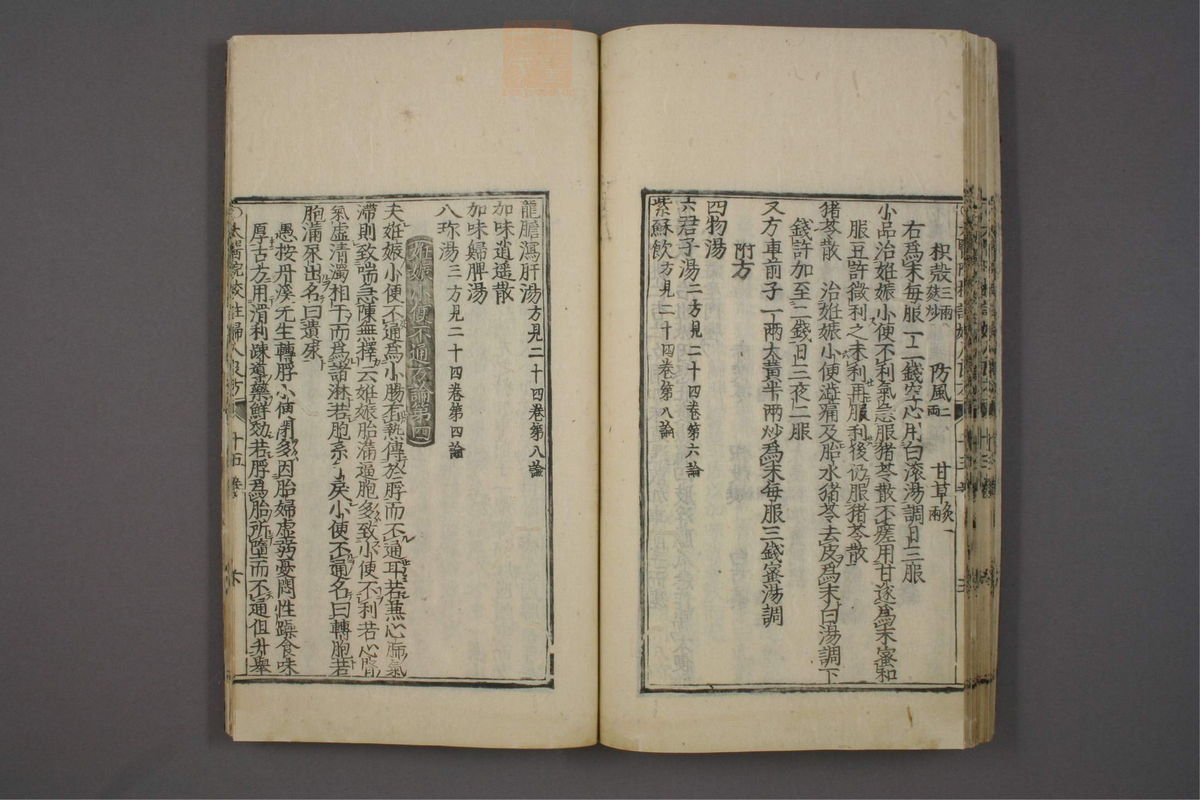 枳殼三兩麩炒 防風二兩 甘草炙一兩
右爲末每服一二錢空心用白滾湯調日三服
小品治姙娠小便不利氣急服猪苓散不瘥用甘遂爲末蜜和
服豆許微利之未利再服利後仍服猪苓散
猪苓散 治姙娠小便澁痛及胎水猪苓去皮爲末白湯調下
錢許加至二錢日三夜二服
又方車前子一兩大黃半兩炒爲末每服三錢蜜湯調
附方
四物湯
六君子湯二方見二十四卷第六論
紫蘇飲方見二十四卷第八論
龍膽瀉肝湯方見二十四卷第八論
加味逍遥散
加味歸脾湯
八珎湯三方見二十四卷第四論
姙娠小便不通方論第四
夫姙娠小便不通爲小腸有熱傳於脬而不通耳若兼心肺氣
滯則致喘急陳無擇云姙娠胎滿逼胞多致小便不利若心腎
氣虛清濁相干而爲諸淋若胞系了戾小便不通名曰轉胞若
胞滿尿出名曰遺尿
愚按丹溪先生轉脬小便閉多因胎婦虛弱憂悶性躁食味
厚古方用滑利踈導藥鮮効若脬爲胎所墮而不通但升舉
太醫院校註婦人良方 十五卷 六